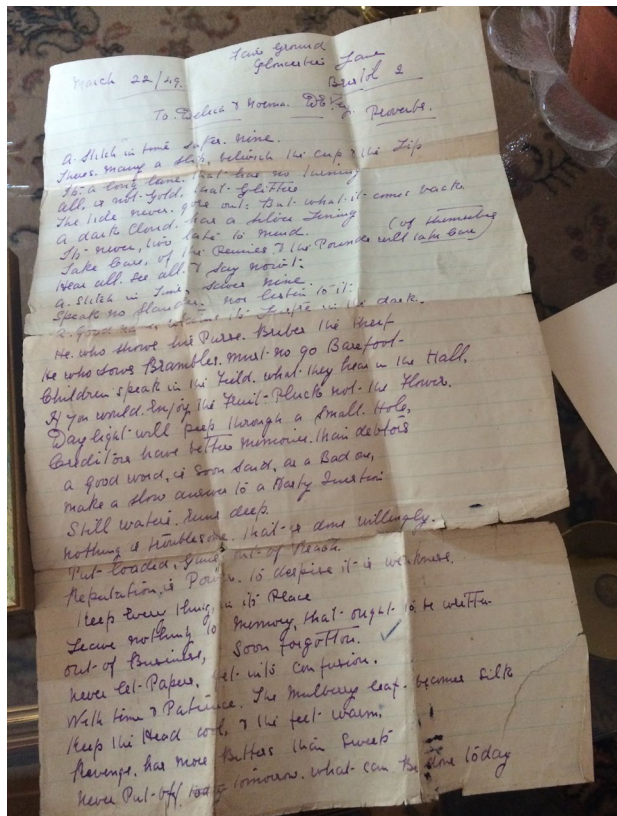 Fair Ground
Gloucester Lane
March 22/49.
Bristol 2
To. & Norma. Proverbs.
A. Stitch in time Safes. Nine.
Theres. many a Slip, betwixt the cup & the Lip
Its a long lane. that has no turning
All. is not. Gold, that Glitters
The tide never. goes out: But what it comes back.
A dark Cloud. has a Silver Lining
Its never, too late to mend.
Take Care, of the Pennies, & the Pounds will take Care (of themselves)
Hear all. See all. & Say nowt:
A. Stitch in Time, Saves Nine.
Speak no Slander. nor listen to it.
A. Good in the dark.
He. who shows his Purse. Bribes the Thief
He who Sows Brambles. must no go Barefoot-
Children speak in the Field. what they hear in the Hall,
If you would Enjoy the Fruit- Pluck not- the Flower.
Daylight will Peep through a Small. Hole,
Creditors have better memories. than debtors
a good word, is Soon Said, as a Bad on,
make a Slow answer to a Hasty Question
Still waters. Runs deep.
nothing is troublesome. that is done willingly.
Put loaded, Guns out of Reach.
Reputation, is Power. to despise it is weakness.
Keep Every thing, in its Place
Leave nothing to Memory, that ought to be written
out of Business, Soon forgotton.
never let Papers. get into Confusion.
With time & Patience. The Mulberry leaf. becomes Silk
Keep the Head cool, & the feet warm.
Revenge. has more Bitters than Sweets
never Put off today tomorrow. what can Be done today